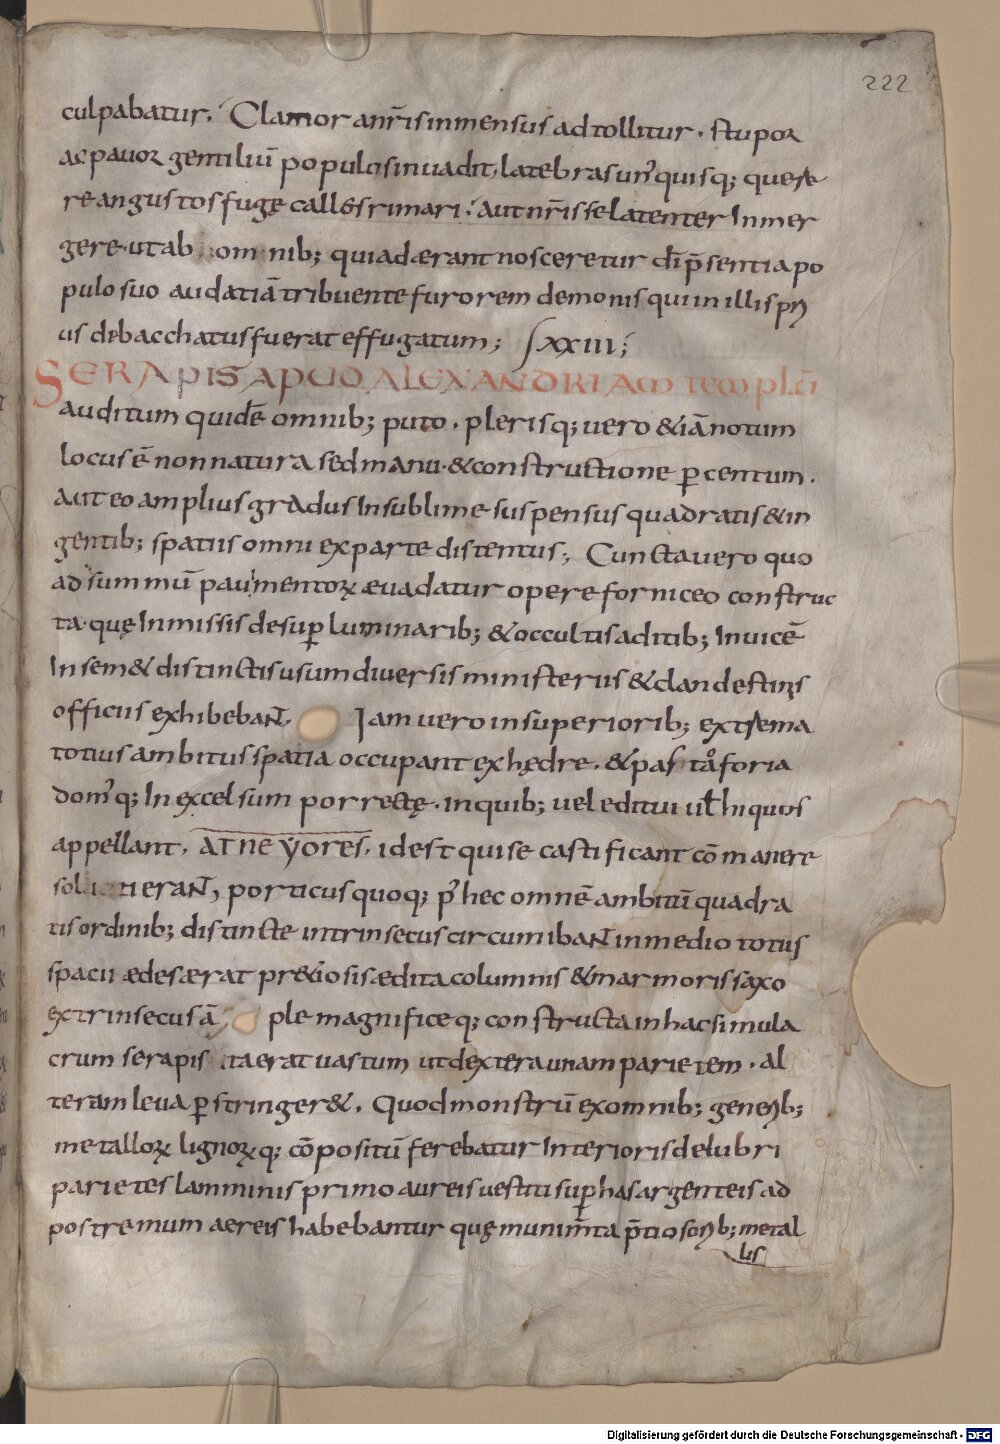 222
culpabatur. Clamor anr̄is inmensus adtollitur. stupor
ac pauor gentiliū populos inuadit, latebras unꝰquisq; quere
re angustos fugę calles rimari. Aut nr̄is se latenter Inmer
gere ut ab omnib; qui aderant nosceretur dī p̄sentia po
pulo suo audatiā tribuente furorem demonis qui in illis pri
us debacchatus fuerat effugatum; XXIII;
SERAPIS APUD ALEXANDRIAM templū
auditum quidē omnib; puto. plerisq; uero & iā notum
locus ē non natura sed manu & constructione ꝑ centum.
aut eo amplius gradus In sublime suspensus quadratis & in
gentib; spatiis omni ex parte distentus; Cuncta uero quo
ad summū pauimentoꝝ æuadatur opere forniceo construc
ta quę Inmissis desuꝑ luminarib; & occultis aditib; Inuicē
In sem& distinctis usum diuersis ministeriis & clandestinis
officiis exhibebant. Iam uero in superiorib; extrema
totius ambitus spatia occupant exhędre. & pastaforia
domꝰq; In excelsum porrectę. in quib; uel editui ul̄ hi quos
appellant. ATNEYORES. id est qui se castificant cōmanere
soliti erant, porticus quoq; pꝰ hec omnē ambitū quadra
tis ordinib; distincte intrinsecus circumibant in medio totus
spacii ædes ærat pr&iosis ædita columnis & marmoris saxo
extrinsecus ā ple magnificeq; constructa in hac simula
crum serapis ita erat uastum ut dextera unam parietem. al
teram leua ꝑstringer&. Quod monstrū ex omnib; generib;
metalloꝝ lignoꝝq; cōpositū ferebatur Interioris delubri
parietes lamminis primo aureis uestiti suꝑ has argenteis ad
postremum aereis habebantur quę munim̄ta p̄tiosorib; metal
lis
Digitalisierung gefördert durch die Deutsche Forschungsgemeinschaft - DFG